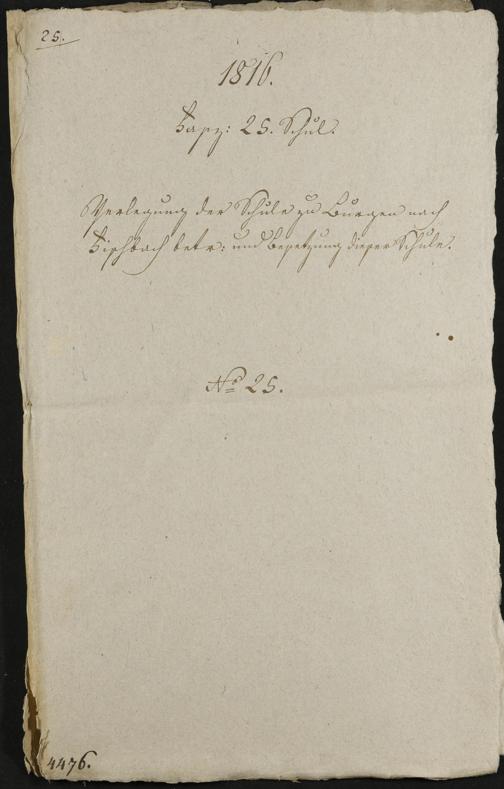 25.
1816.
Fasz: 25. Schul.
Verlegung der Schule zu Burgen nach
Fischbach betr: und Besetzung dieser Schule.
No 25.
4476.